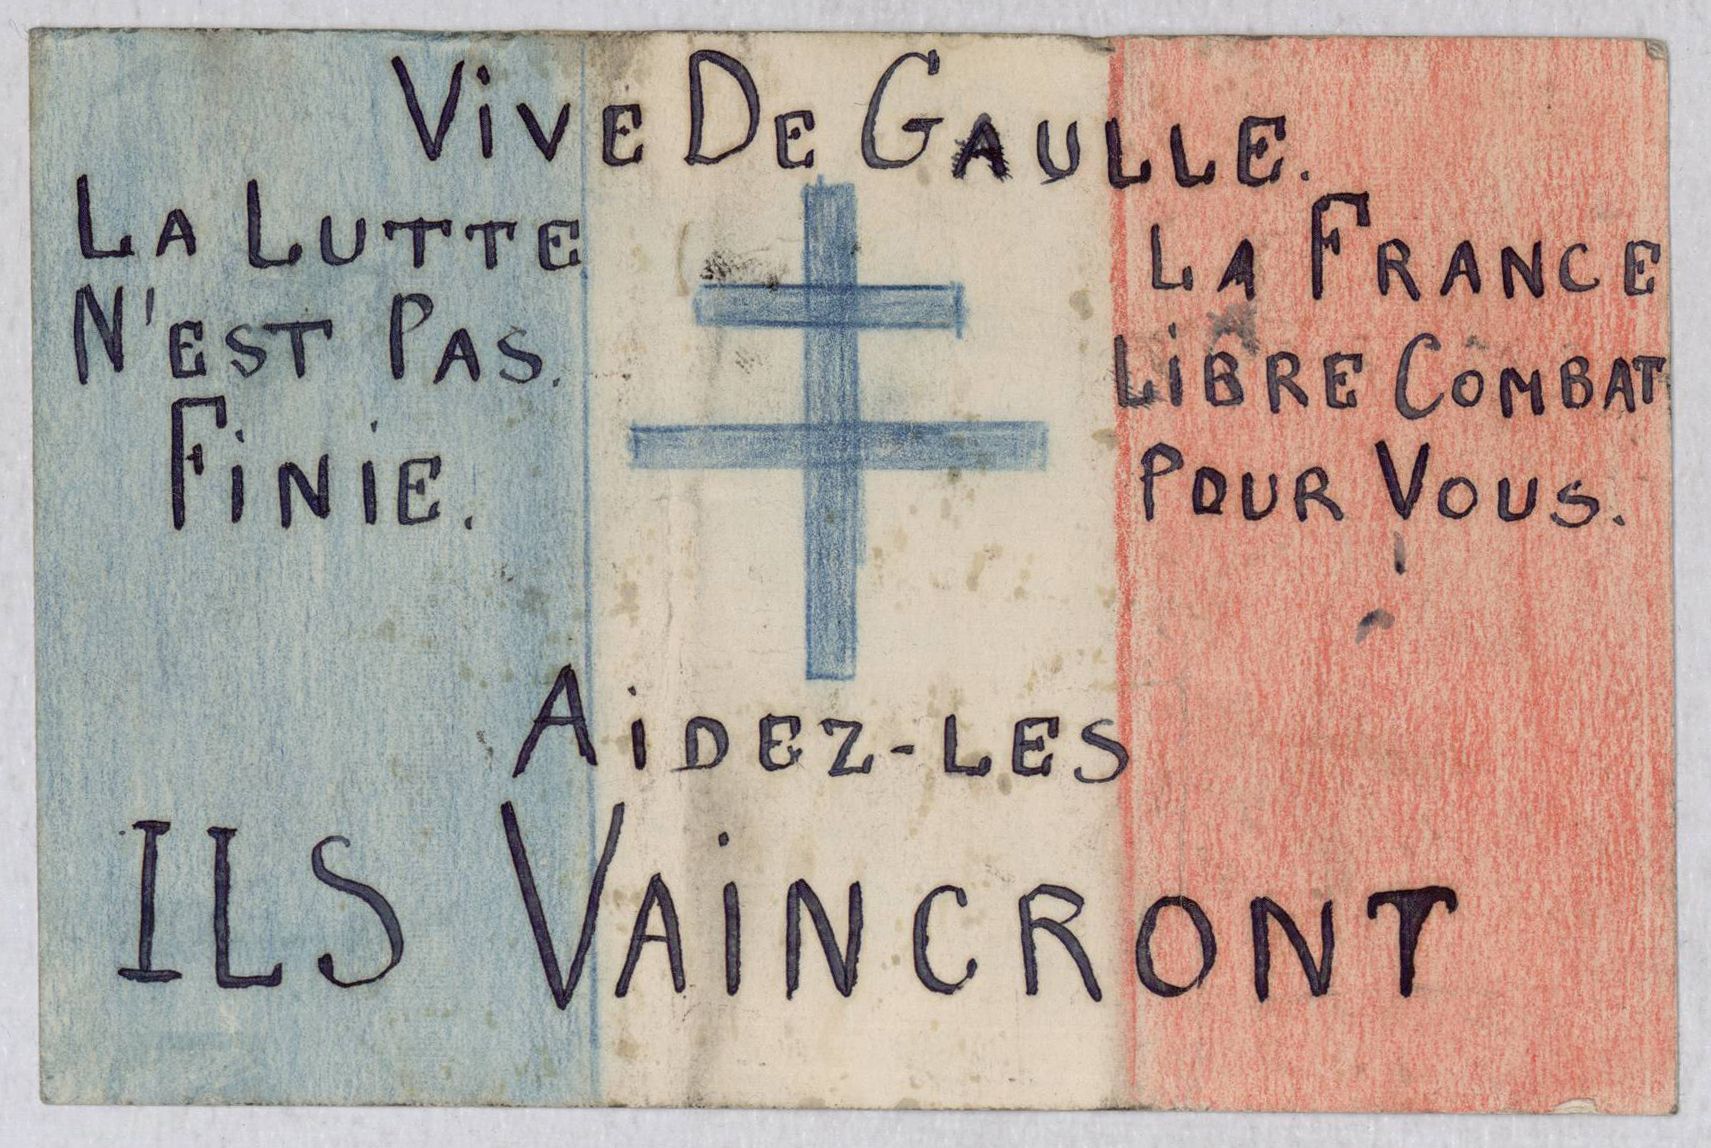 Vive De Gaulle.
La Lutte
N'est Pas.
Finie.
La France
Libre Combat
Pour Vous.
Aidez-les
Ils Vaincront